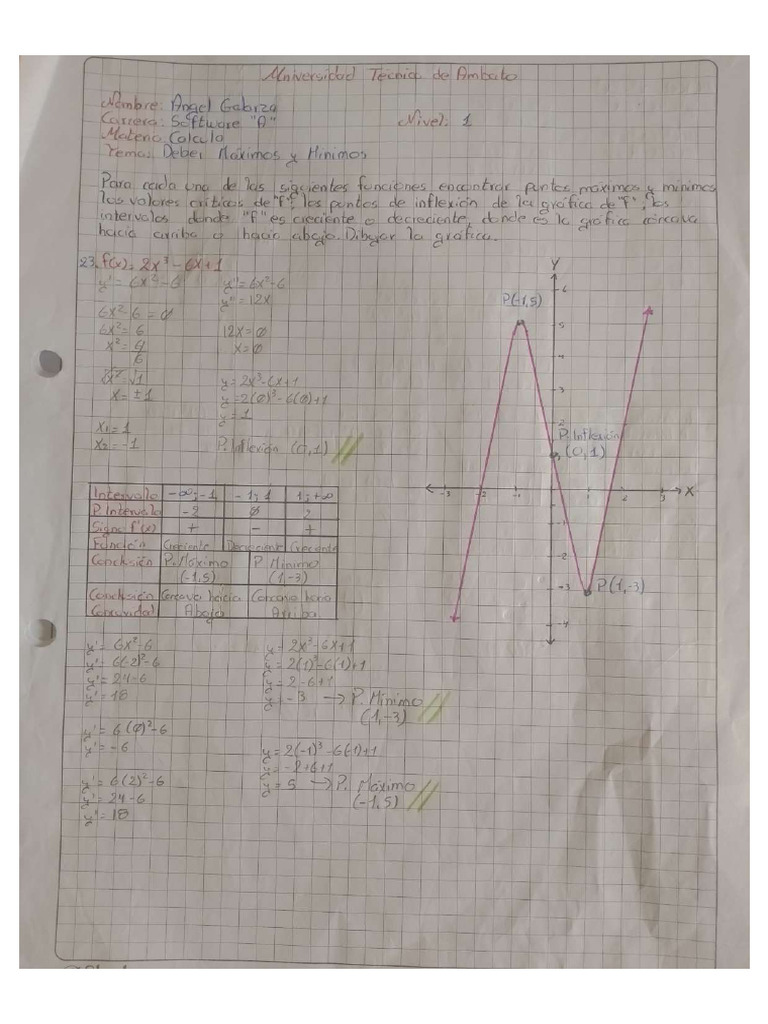 Universidad Técnica de Ambato
Nombre: Angel Gabriza
Carrera: Software "A" Nivel: 1
Materia: Calculo
Tema: Deber Máximos y Minimos
Para cada una de las siguientes funciones encontrar puntos maximos y minimos
los valores criticos de "f", los puntos de inflexión de la gráfica de "f", los
intervalos donde "f" es creciente o decreciente, donde es la gráfica concava
hacia arriba o hacia abajo. Dibujar la gráfica.
23. f(x): 2x³-6x+1
y' = 6x²-6
6x²-6=0
6x²=6
x²=6/6
√x²=√1
x=±1
x₁=1
x₂=-1
y''=6x²-6
y''=12x
12x=0
x=0
y=2x³-6x+1
y=2(0)³-6(0)+1
y=1
P. Inflexión (0,1)
Y
6
5
4
3
2
1
-1
-2
-3
-4
-3 -2 -1 1 2 3 X
P(-1,5)
P. Inflexión
(0,1)
P(1,-3)
Intervalo -∞;-1 -1;1 1;+∞
P. Intervalo -2 0 2
Signo f'(x) + - +
Función Creciente Decreciente Creciente
Conclusión P. Máximo P. Minimo
(-1,5) (1,-3)
Conclusión Concava hacia Concava hacia
Concavidad Abajo Arriba
y'= 6x²-6
y'= 6(-2)²-6
y'= 24-6
y'= 18
y'= 6(0)²-6
y'= -6
y'= 6(2)²-6
y'= 24-6
y'= 18
y= 2x³-6x+1
y= 2(1)³-6(1)+1
y= 2-6+1
y= -3 → P. Minimo
(1,-3)
y= 2(-1)³-6(-1)+1
y= -2+6+1
y= 5 → P. Máximo
(-1,5)